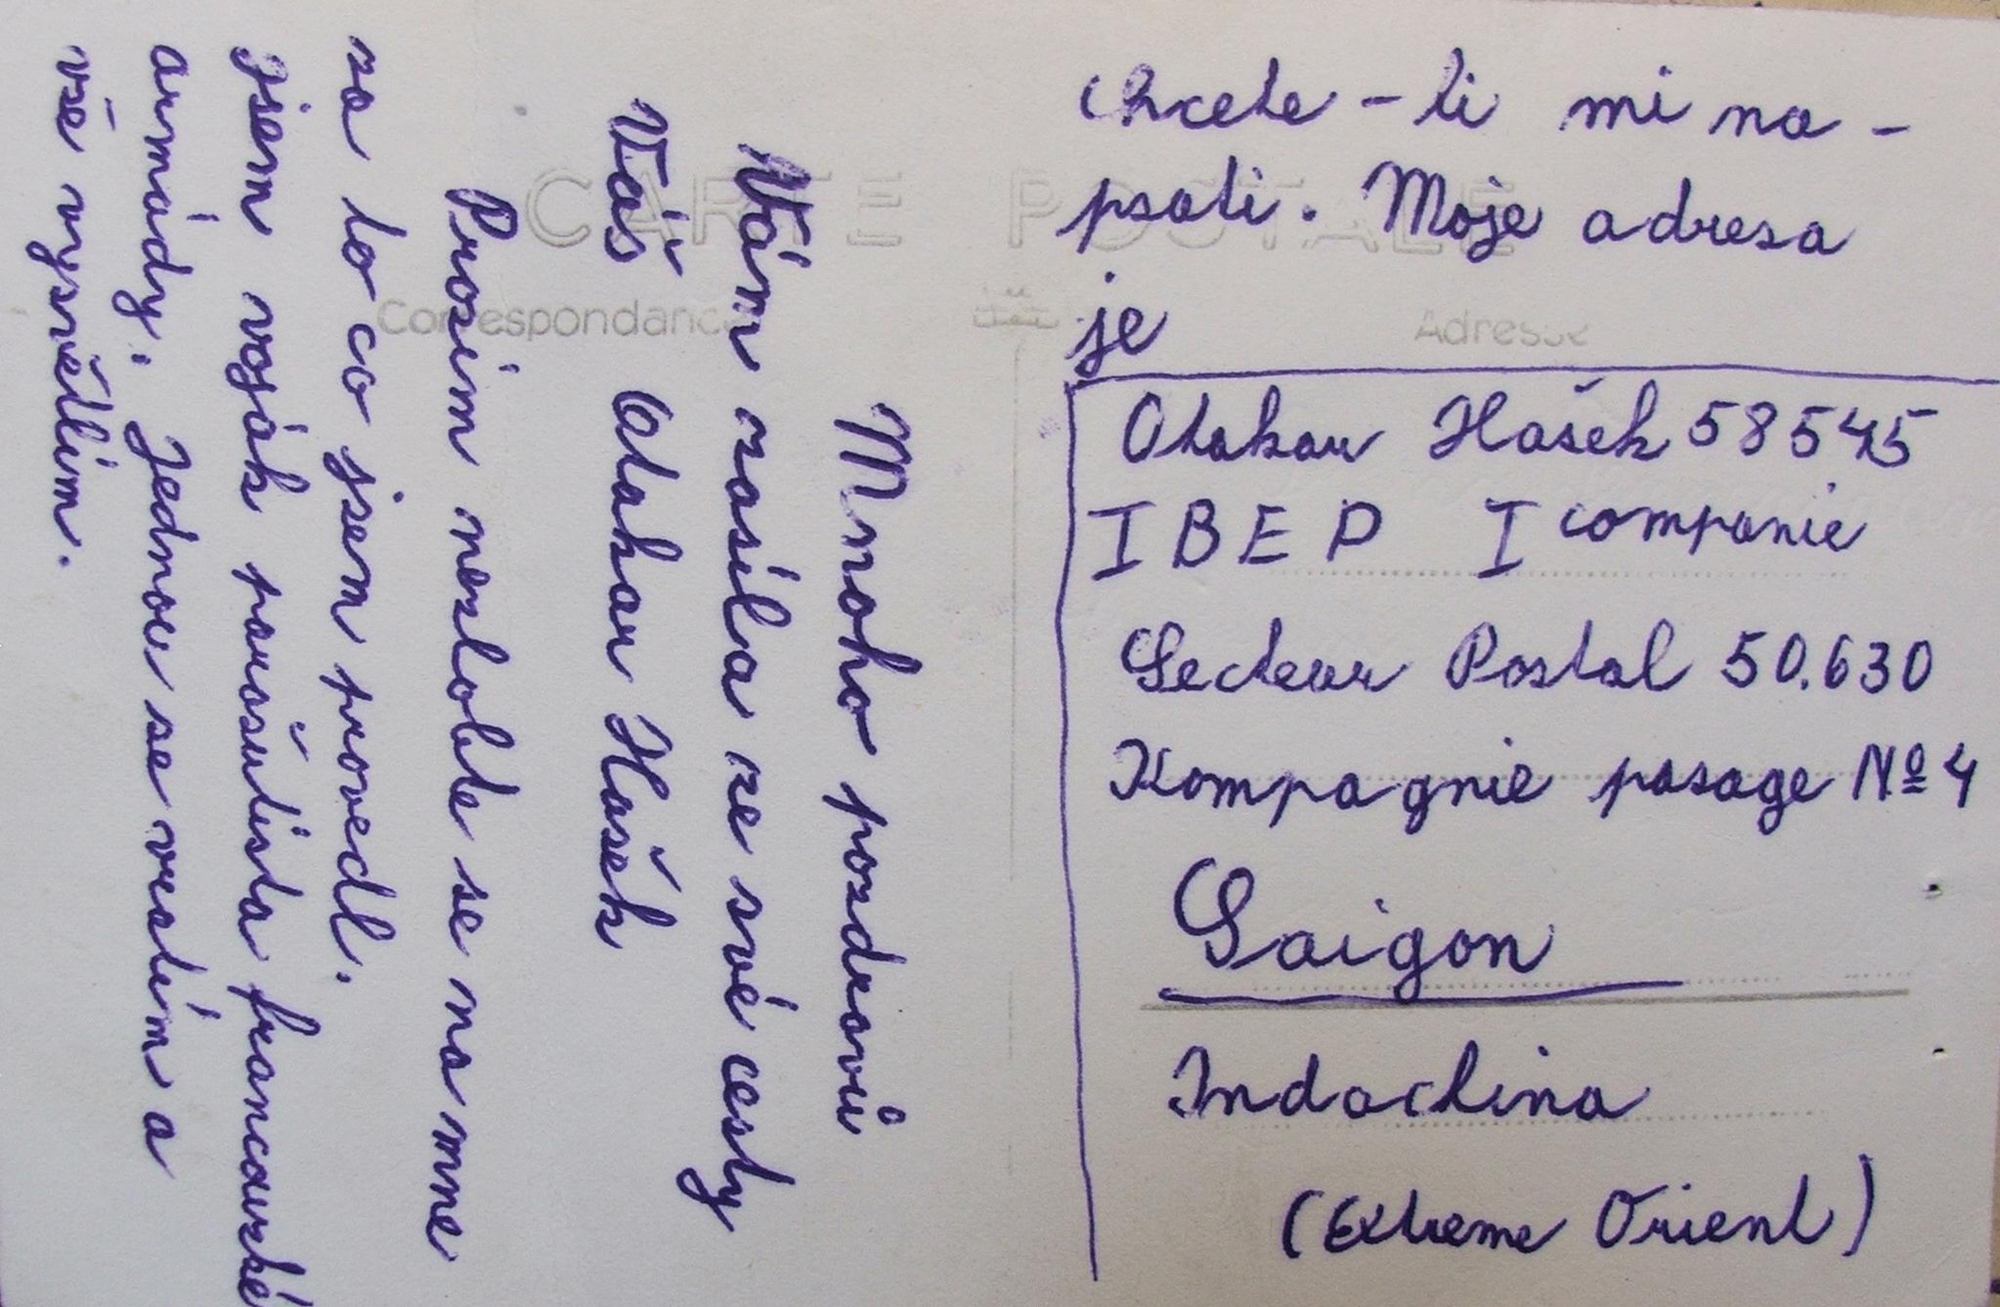 CARTE POSTALE
Correspondance
Adresse
Mnoho pozdravů
Vám zasíla ze své cesty
Váš Otakar Hašek
Prosím nezlobte se na mne
za to co jsem provedl.
Jsem voják parašutista francouzské
armády. Jednou se vrátím a
vše vysvětlím.
Chcete-li mi na-
psati. Moje adresa
je
Otakar Hašek 58545
I B E P I companie
Secteur Postal 50.630
Kompagnie pasage Nº 4
Saigon
Indochina
(Extreme Orient)